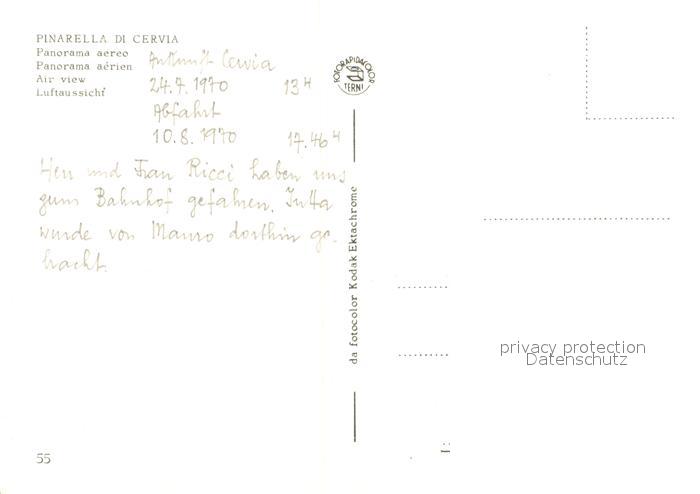 PINARELLA DI CERVIA
Panorama aereo
Panorama aérien
Air view
Luftaussicht
Ankunft Cervia
24.7.1970 13 H
Abfahrt
10.8.1970 17.46 H
Herr und Frau Ricci haben uns
zum Bahnhof gefahren. Jutta
wurde von Mauro dorthin ge-
bracht.
FOTORAPIDACOLOR
TERNI
da fotocolor Kodak Ektachrome
privacy protection
Datenschutz
55